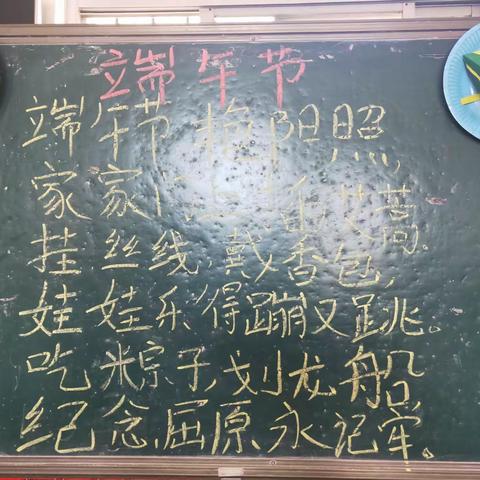 端午节
端午节,艳阳照,
家家门上插艾蒿。
挂丝线,戴香包,
娃娃乐得蹦又跳。
吃粽子,划龙船,
纪念屈原永记牢。